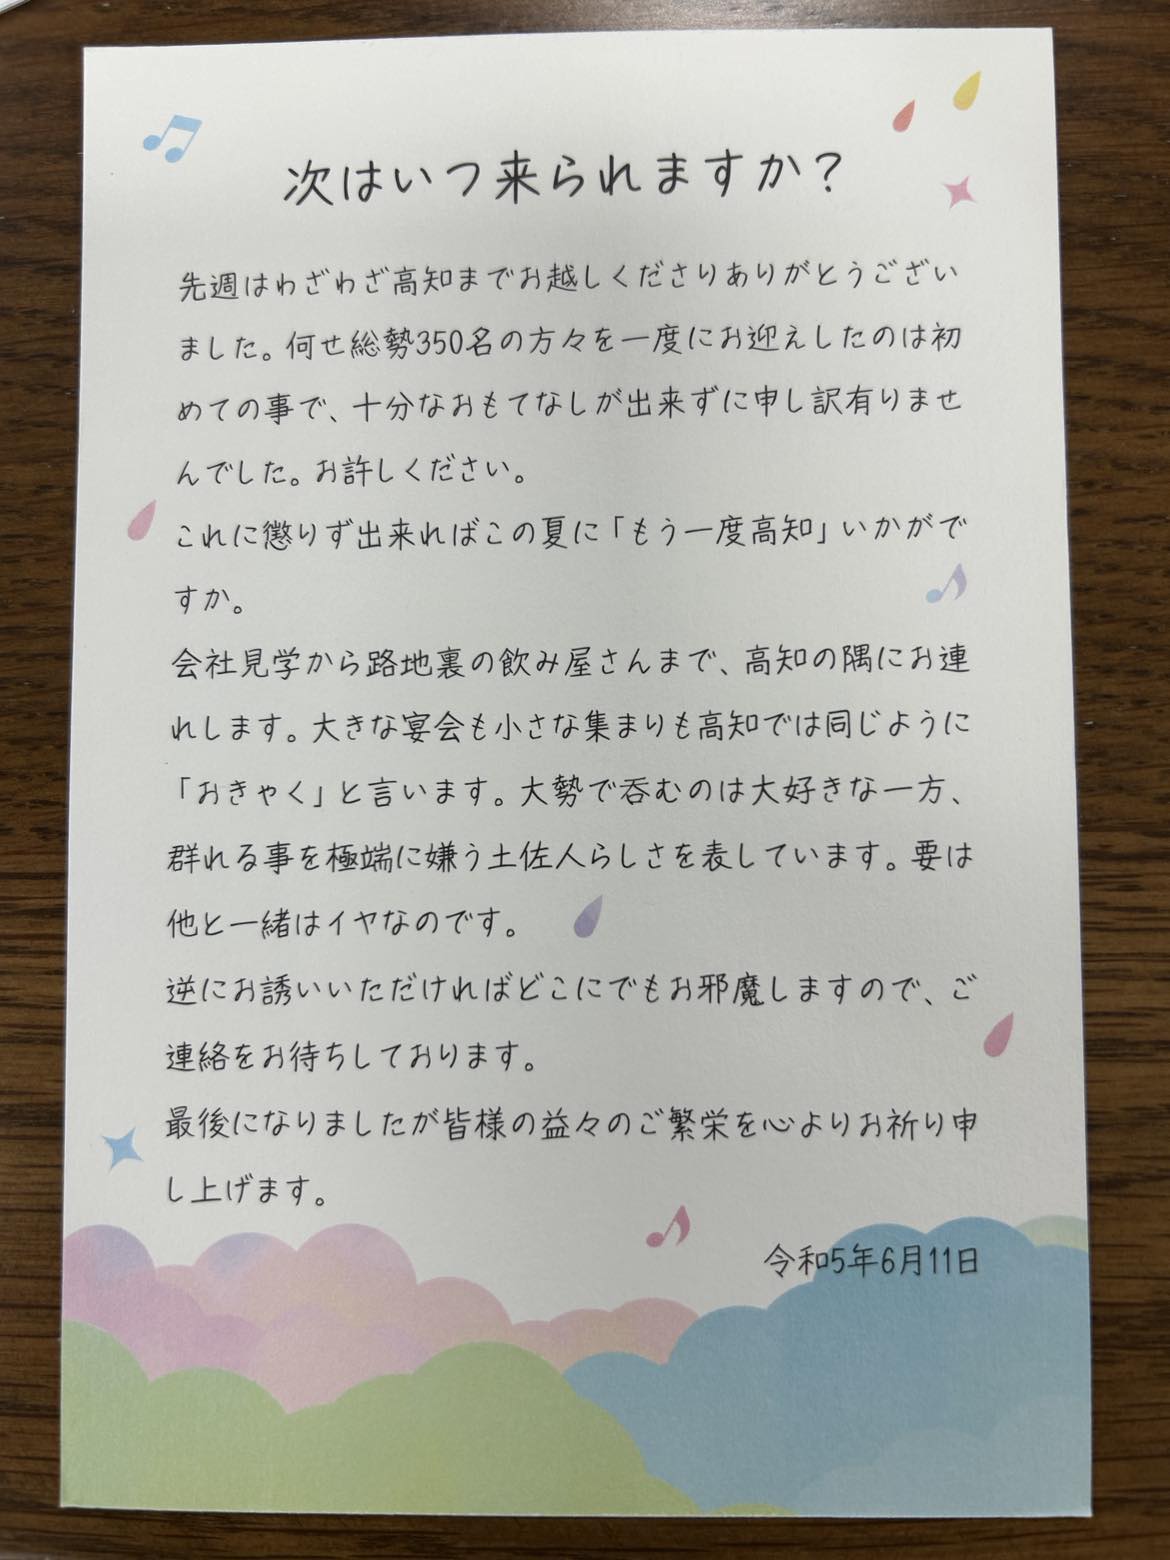 次はいつ来られますか?
先週はわざわざ高知までお越しくださりありがとうござい
ました。何せ総勢350名の方々を一度にお迎えしたのは初
めての事で、十分なおもてなしが出来ずに申し訳有りませ
んでした。お許しください。
これに懲りず出来ればこの夏に「もう一度高知」いかがで
すか。
会社見学から路地裏の飲み屋さんまで、高知の隅にお連
れします。大きな宴会も小さな集まりも高知では同じように
「おきゃく」と言います。大勢で呑むのは大好きな一方、
群れる事を極端に嫌う土佐人らしさを表しています。要は
他と一緒はイヤなのです。
逆にお誘いいただければどこにでもお邪魔しますので、ご
連絡をお待ちしております。
最後になりましたが皆様の益々のご繁栄を心よりお祈り申
し上げます。
令和5年6月11日